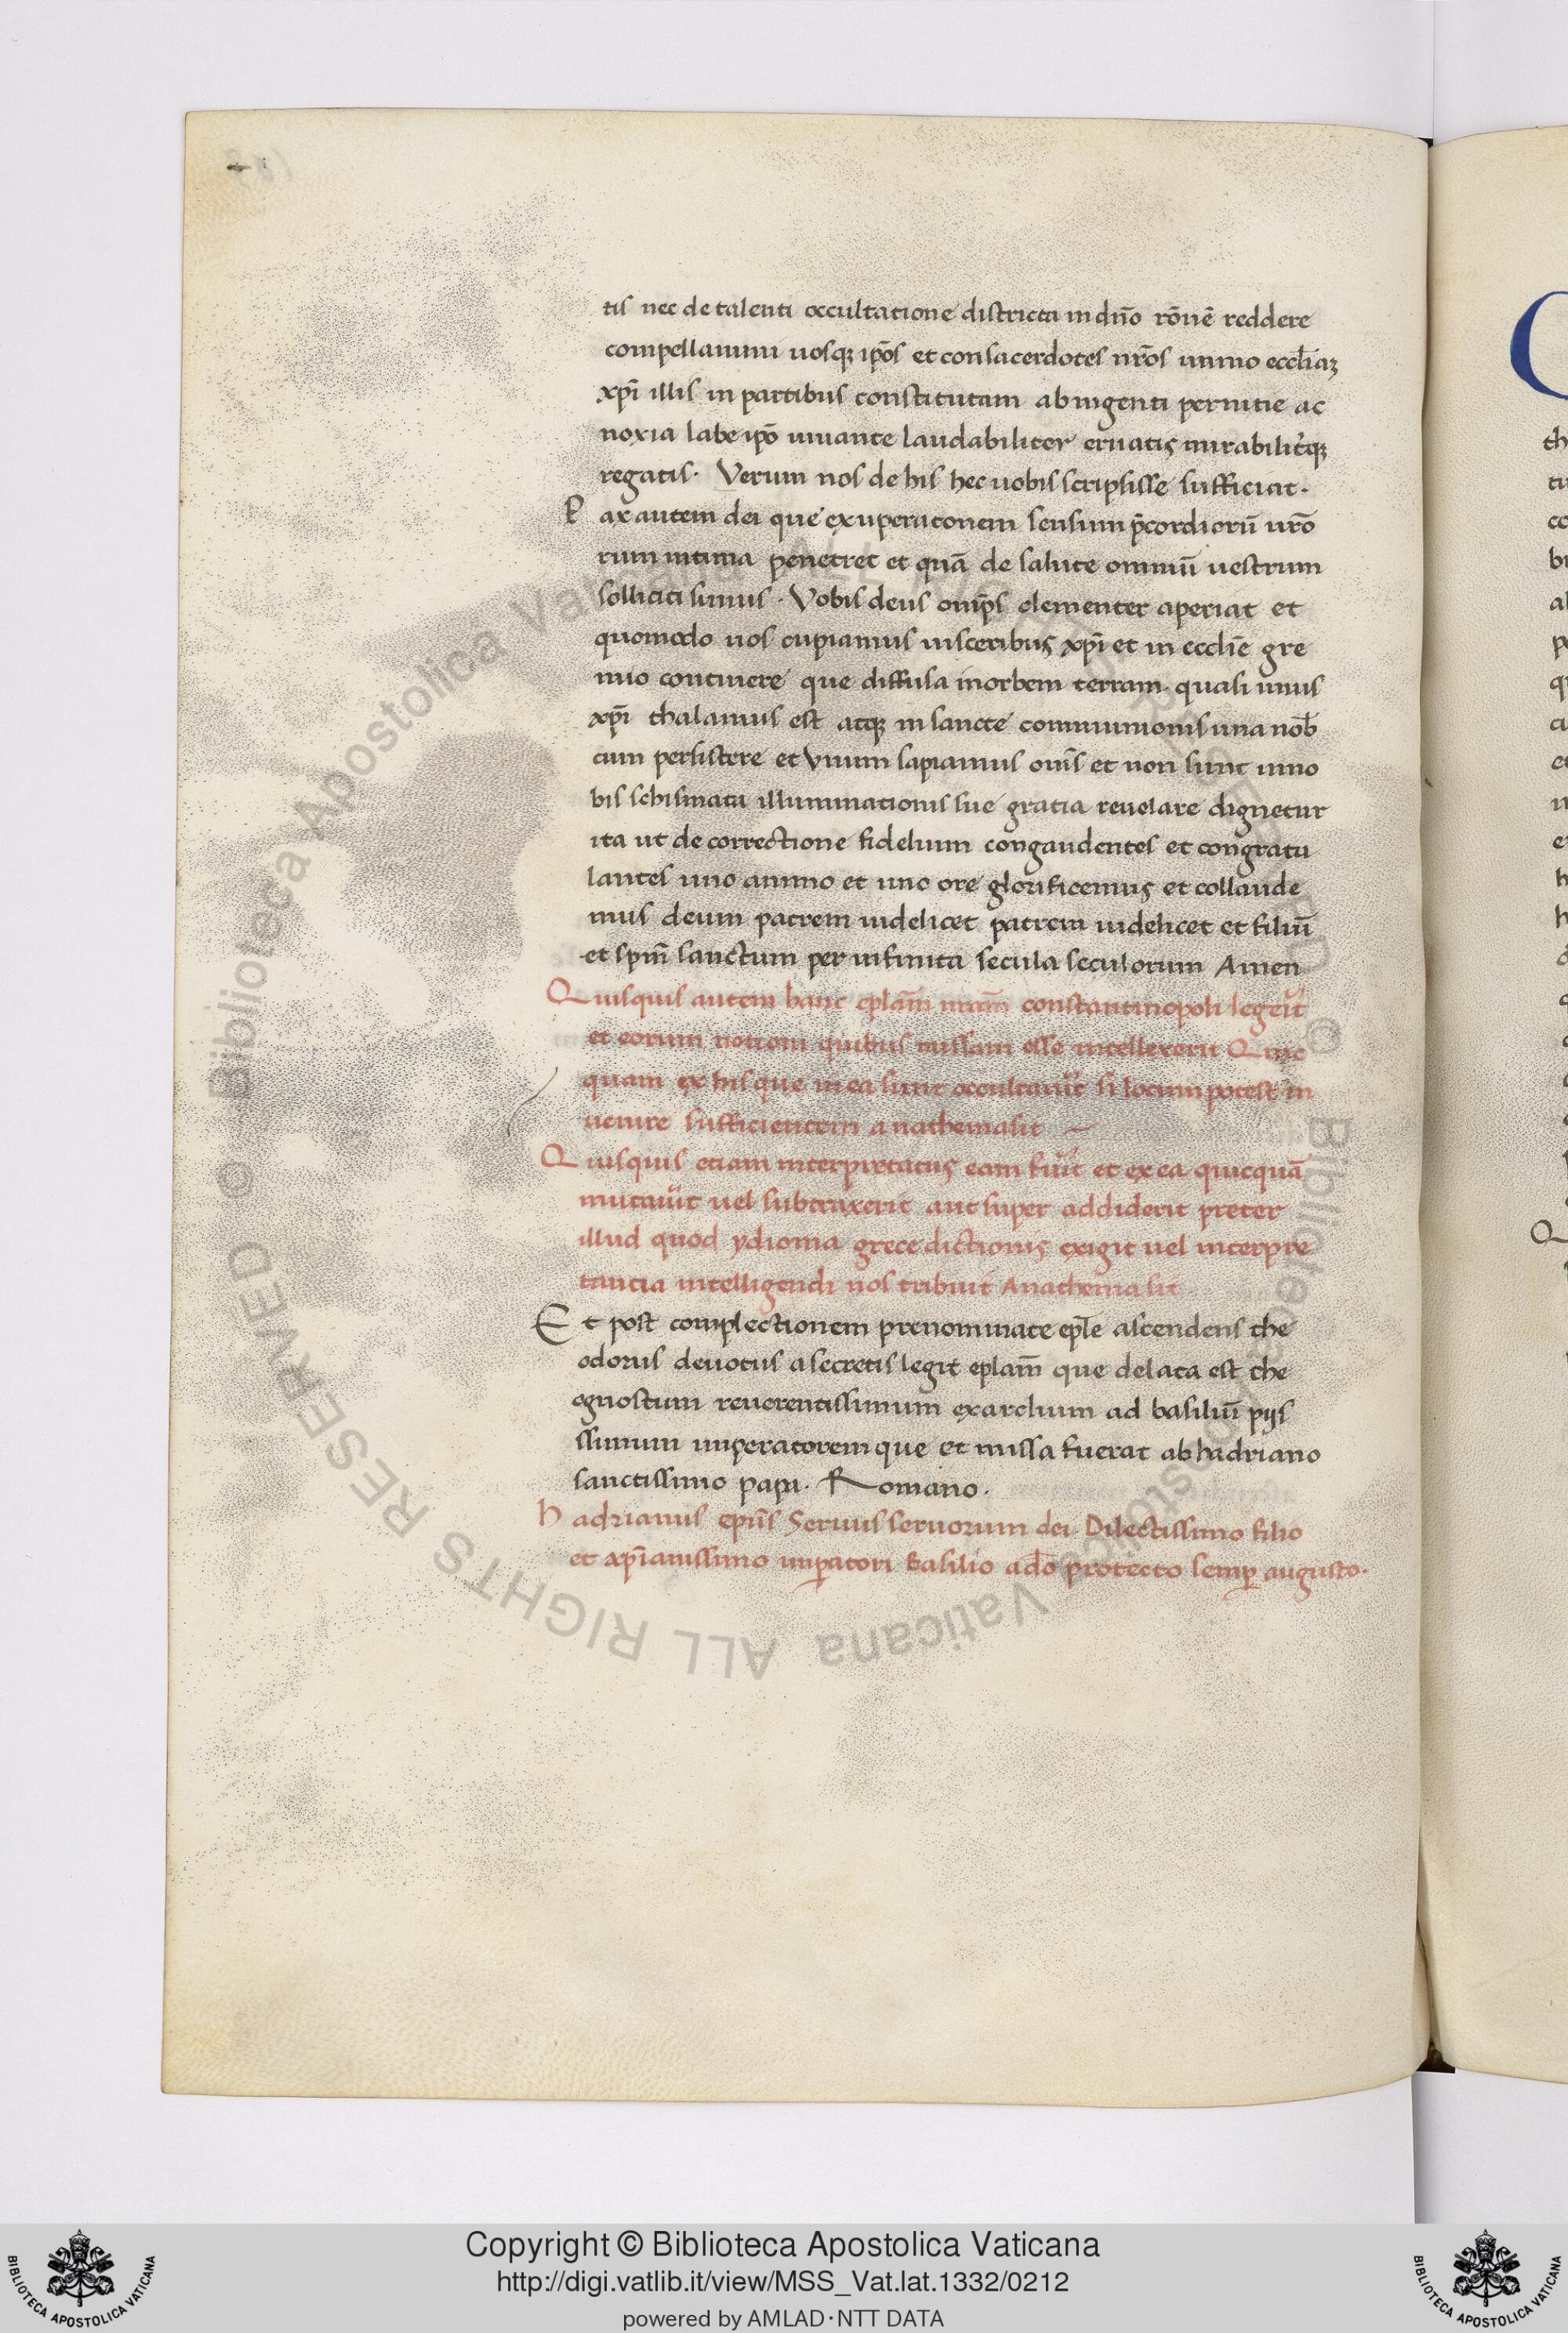 tis nec de talenti occultatione districta in dn̄o rōnē reddere
compellamini uosqꝫ ip̄os et consacerdotes nr̄os immo eccl̄iaꝫ
xp̄i illis in partibus constitutam ab ingenti pernitie ac
noxia labe ip̄o iuuante laudabiliter eruatis mirabilit̓qꝫ
regatis. Verum nos de his hec uobis scripsisse sufficiat.
P ax autem dei que exuperat onem sensum p̄cordiorū ur̄o
rum intima penetret et quā de salute omniū uestrum
solliciti simus. Vobis deus om̄ps clementer aperiat et
quomodo uos cupiamus uisceribus xp̄i et in eccl̄ie gre
mio continere que diffusa in orbem terram quasi unus
xp̄i thalamus est atqꝫ in sancte communionis una nob̄
cum persistere et Vnum sapiamus om̄s et non sunt inno
bis schismata illuminationis sue gratia reuelare dignetur
ita ut de correctione fidelium congaudentes et congratu
lantes uno animo et uno ore glorificemus et collaude
mus deum patrem uidelicet patrem uidelicet et filiū
et sp̄m sanctum per infinita secula seculorum Amen
Q uisquis autem hanc ep̄lam nr̄am constantinopoli leger̓it
et eorum notioni quibus missam esse intellexerit Quic
quam ex his que in ea sunt occultau̓it si locum potest in
uenire sufficientem anathema sit —
Q uisquis etiam interpretatus eam fu̓it et ex ea quicquā
mutau̓it uel subtraxerit aut super addiderit preter
illud quod ydioma grece dictionis exigit uel interpre
tantia intelligendi nos tribuit Anathema sit
E t post complectionem prenominate ep̄le ascendens the
odorus deuotus a secretis legit ep̄lam que delata est the
ognostum reuerentissimum exarchum ad basiliū pijs
ssimum imperatorem que et missa fuerat ab hadriano
sanctissimo papa. Romano.
H adrianus ep̄us Seruus seruorum dei Dilectissimo filio
et xp̄ianissimo imp̄atori Basilio a dō protecto semp̄ augusto.
Copyright © Biblioteca Apostolica Vaticana
http://digi.vatlib.it/view/MSS_Vat.lat.1332/0212
powered by AMLAD·NTT DATA